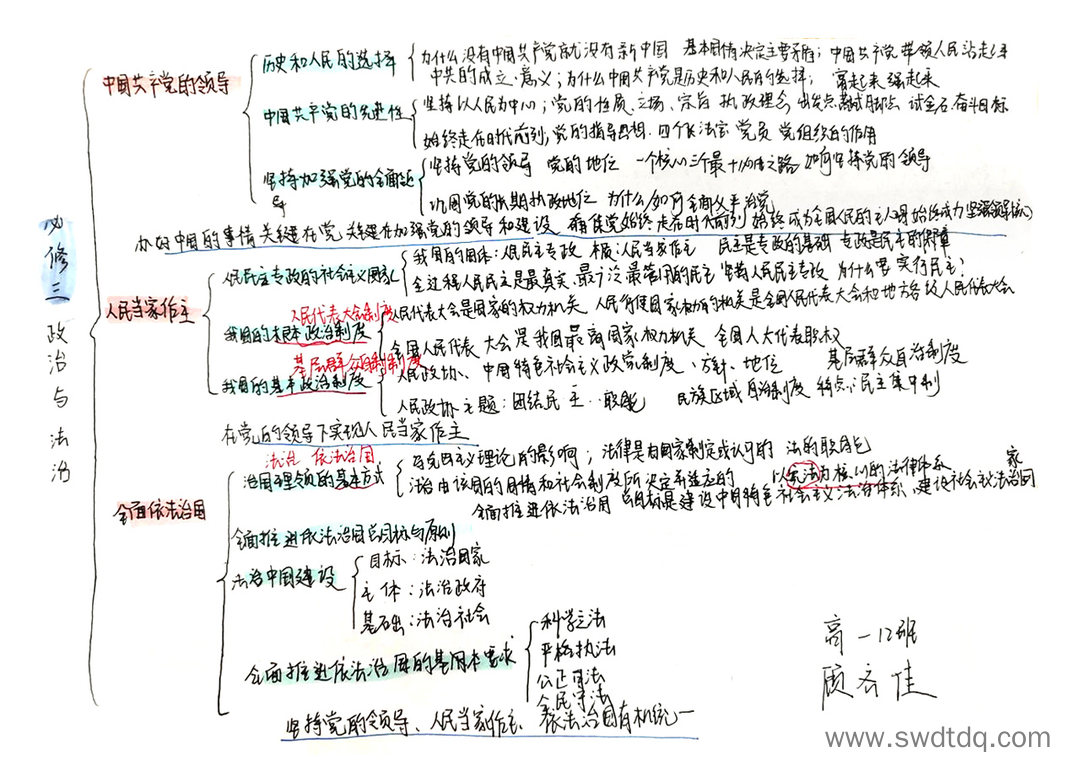 必修三
政治与法治
中国共产党的领导
历史和人民的选择
为什么没有中国共产党就没有新中国 基本国情决定主要矛盾；中国共产党带领人民站起来
中共的成立、意义；为什么中国共产党是历史和人民的选择； 富起来 强起来
中国共产党的先进性
坚持以人民为中心；党的性质、立场、宗旨 执政理念 出发点落脚点 试金石 奋斗目标
始终走在时代前列，党的指导思想 四个 党员 党组织的作用
坚持加强党的全面领导
坚持党的领导 党的地位 一个核心 三个最 如何坚持党的领导
巩固党的长期执政地位 为什么/如何全面从严治党
办好中国的事情关键在党 关键在加强党的领导和建设 确保党始终走在时代前列 始终成为全国人民的主心骨 始终成为坚强领导核心
人民当家作主
人民民主专政的社会主义国家
我国的国体：人民民主专政 人民当家作主 民主是专政的基础 专政是民主的
全过程人民民主是最真实 最广泛 最管用的民主 坚持人民民主专政 为什么要实行民主？
人民代表大会制度
我国的根本政治制度
人民代表大会是国家的权力机关 人民行使国家权力的机关是全国人民代表大会和地方各级人民代表大会
全国人民代表大会是我国最高国家权力机关 全国人大代表职权
基层群众自治制度
我国的基本政治制度
人民政协、中国特色社会主义政党制度、方针、地位 基层群众自治制度
人民政协主题：团结民主 民族区域自治制度 特点：民主集中制
在党的领导下实现人民当家作主
全面依法治国
法治 依法治国
治国理政的基本方式
马克思主义理论的影响；法律是由国家制定或认可的 法的职能
法治由该国的国情和社会制度所决定并适应的 以宪法为核心的法律体系
全面推进依法治国 总目标是建设中国特色社会主义法治体系、建设社会主义法治国家
全面推进依法治国总目标与原则
法治中国建设
目标：法治国家
主体：法治政府
基础：法治社会
全面推进依法治国的基本要求
科学立法
严格执法
公正司法
全民守法
坚持党的领导、人民当家作主、依法治国有机统一
高一12班
www.swdtdq.com